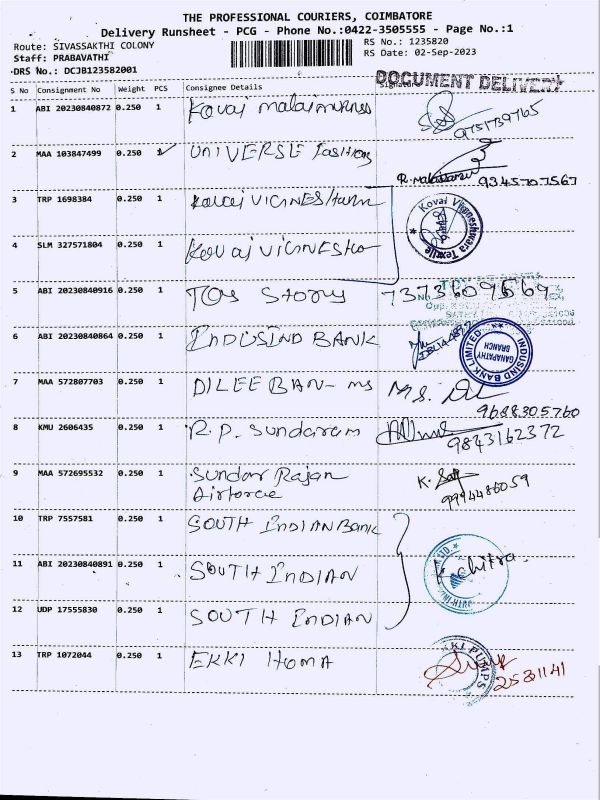 THE PROFESSIONAL COURIERS, COIMBATORE
Delivery Runsheet - PCG - Phone No.:0422-3505555 - Page No.:1
Route: SIVASSAKTHI COLONY
RS No.: 1235820
Staff: PRABAVATHI
RS Date: 02-Sep-2023
DRS No.: DCJB123582001
DOCUMENT DELIVERY
S No Consignment No Weight PCS Consignee Details
1 ABI 20230840872 0.250 1 Kovai
9751739765
2 MAA 103847499 0.250 1 UNIVERSE Fashions
9345707567
3 TRP 1698384 0.250 1 Kovai
Kovai Vigneshwara Textile
4 SLM 327571804 0.250 1 Kovai
5 ABI 20230840916 0.250 1 TOY Story 7373609569
6 ABI 20230840864 0.250 1 INDUSIND BANK
INDUSIND BANK LIMITED
GANAPATHY
BRANCH
7 MAA 572807703 0.250 1 DILEEBAN - MS M.S.
9688305760
8 KMU 2606435 0.250 1 R.P. Sundaram
9843162372
9 MAA 572695532 0.250 1 Sundar Rajan K.
Airforce 9994486059
10 TRP 7557581 0.250 1 SOUTH INDIAN Bank
11 ABI 20230840891 0.250 1 SOUTH INDIAN K. chitra
12 UDP 17555830 0.250 1 SOUTH INDIAN
13 TRP 1072044 0.250 1 EKKI HOMA
PUMPS